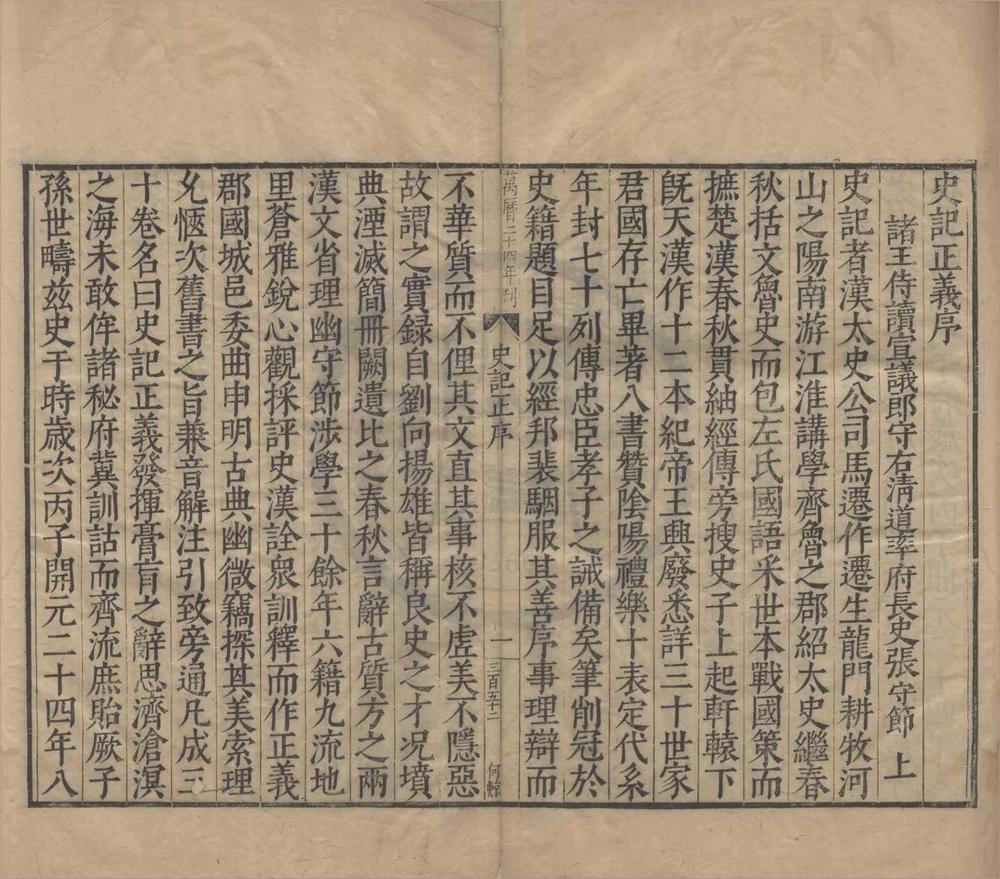 史記正義序
諸王侍讀宣議郎守右清道率府長史張守節上
史記者漢太史公司馬遷作遷生龍門耕牧河
山之陽南游江淮講學齊魯之郡紹太史繼春
秋括文魯史而包左氏國語采世本戰國策而
摭楚漢春秋貫紬經傳旁搜史子上起軒轅下
旣天漢作十二本紀帝王興廢悉詳三十世家
君國存亡畢著八書贊陰陽禮樂十表定代系
年封七十列傳忠臣孝子之誠備矣筆削冠於
史籍題目足以經邦裴駰服其善序事理辯而
萬曆二十四年刊
史記正序
一
三百五十二
何鯨
不華質而不俚其文直其事核不虛美不隱惡
故謂之實錄自劉向揚雄皆稱良史之才况墳
典湮滅簡冊闕遺比之春秋言辭古質方之兩
漢文省理幽守節涉學三十餘年六籍九流地
里蒼雅銳心觀採評史漢詮衆訓釋而作正義
郡國城邑委曲申明古典幽微竊探其美索理
允愜次舊書之旨兼音解注引致旁通凡成三
十卷名曰史記正義發揮膏肓之辭思濟滄溟
之海未敢侔諸秘府冀訓詁而齊流庶貽厥子
孫世疇兹史于時歲次丙子開元二十四年八